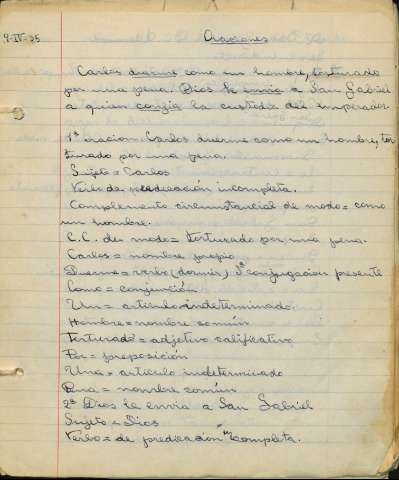 9-IV-35
Oraciones
Carlos duerme como un hombre, torturado
por una pena. Dios le envia a San Gabriel
a quien confia la custodia del emperador.
1ª oracion: Carlos duerme como un hombre, tor-
turado por una pena.
Sujeto = Carlos
Verbo de predicación incompleta.
Complemento circunstancial de modo = como
un hombre.
C.C. de modo = torturado por una pena.
Carlos = nombre propio
Duerme = verbo (dormir) 3ª conjugacion presente
Como = conjunción
Un = articulo indeterminado
Hombre = nombre común
Torturado = adjetivo calificativo
Por = preposición
Una = articulo indeterminado
Pena = nombre común
2ª Dios le envia a San Gabriel
Sujeto = Dios
Verbo = de predicación incompleta.